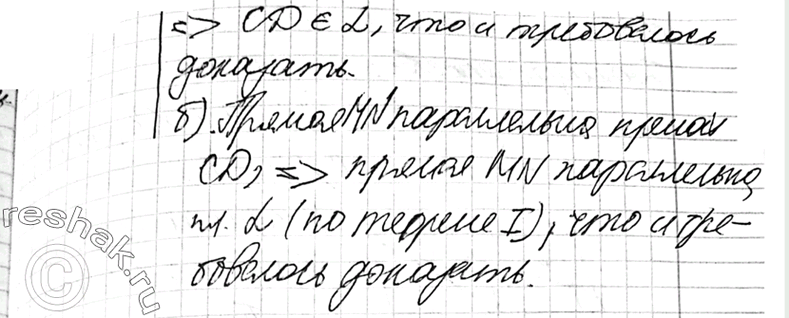 => CD ∈ α, что и требовалось
доказать.
б). Прямая MN параллельна прямой
CD, => прямая MN параллельна
пл. α (по теореме I), что и тре-
бовалось доказать.
reshak.ru
©